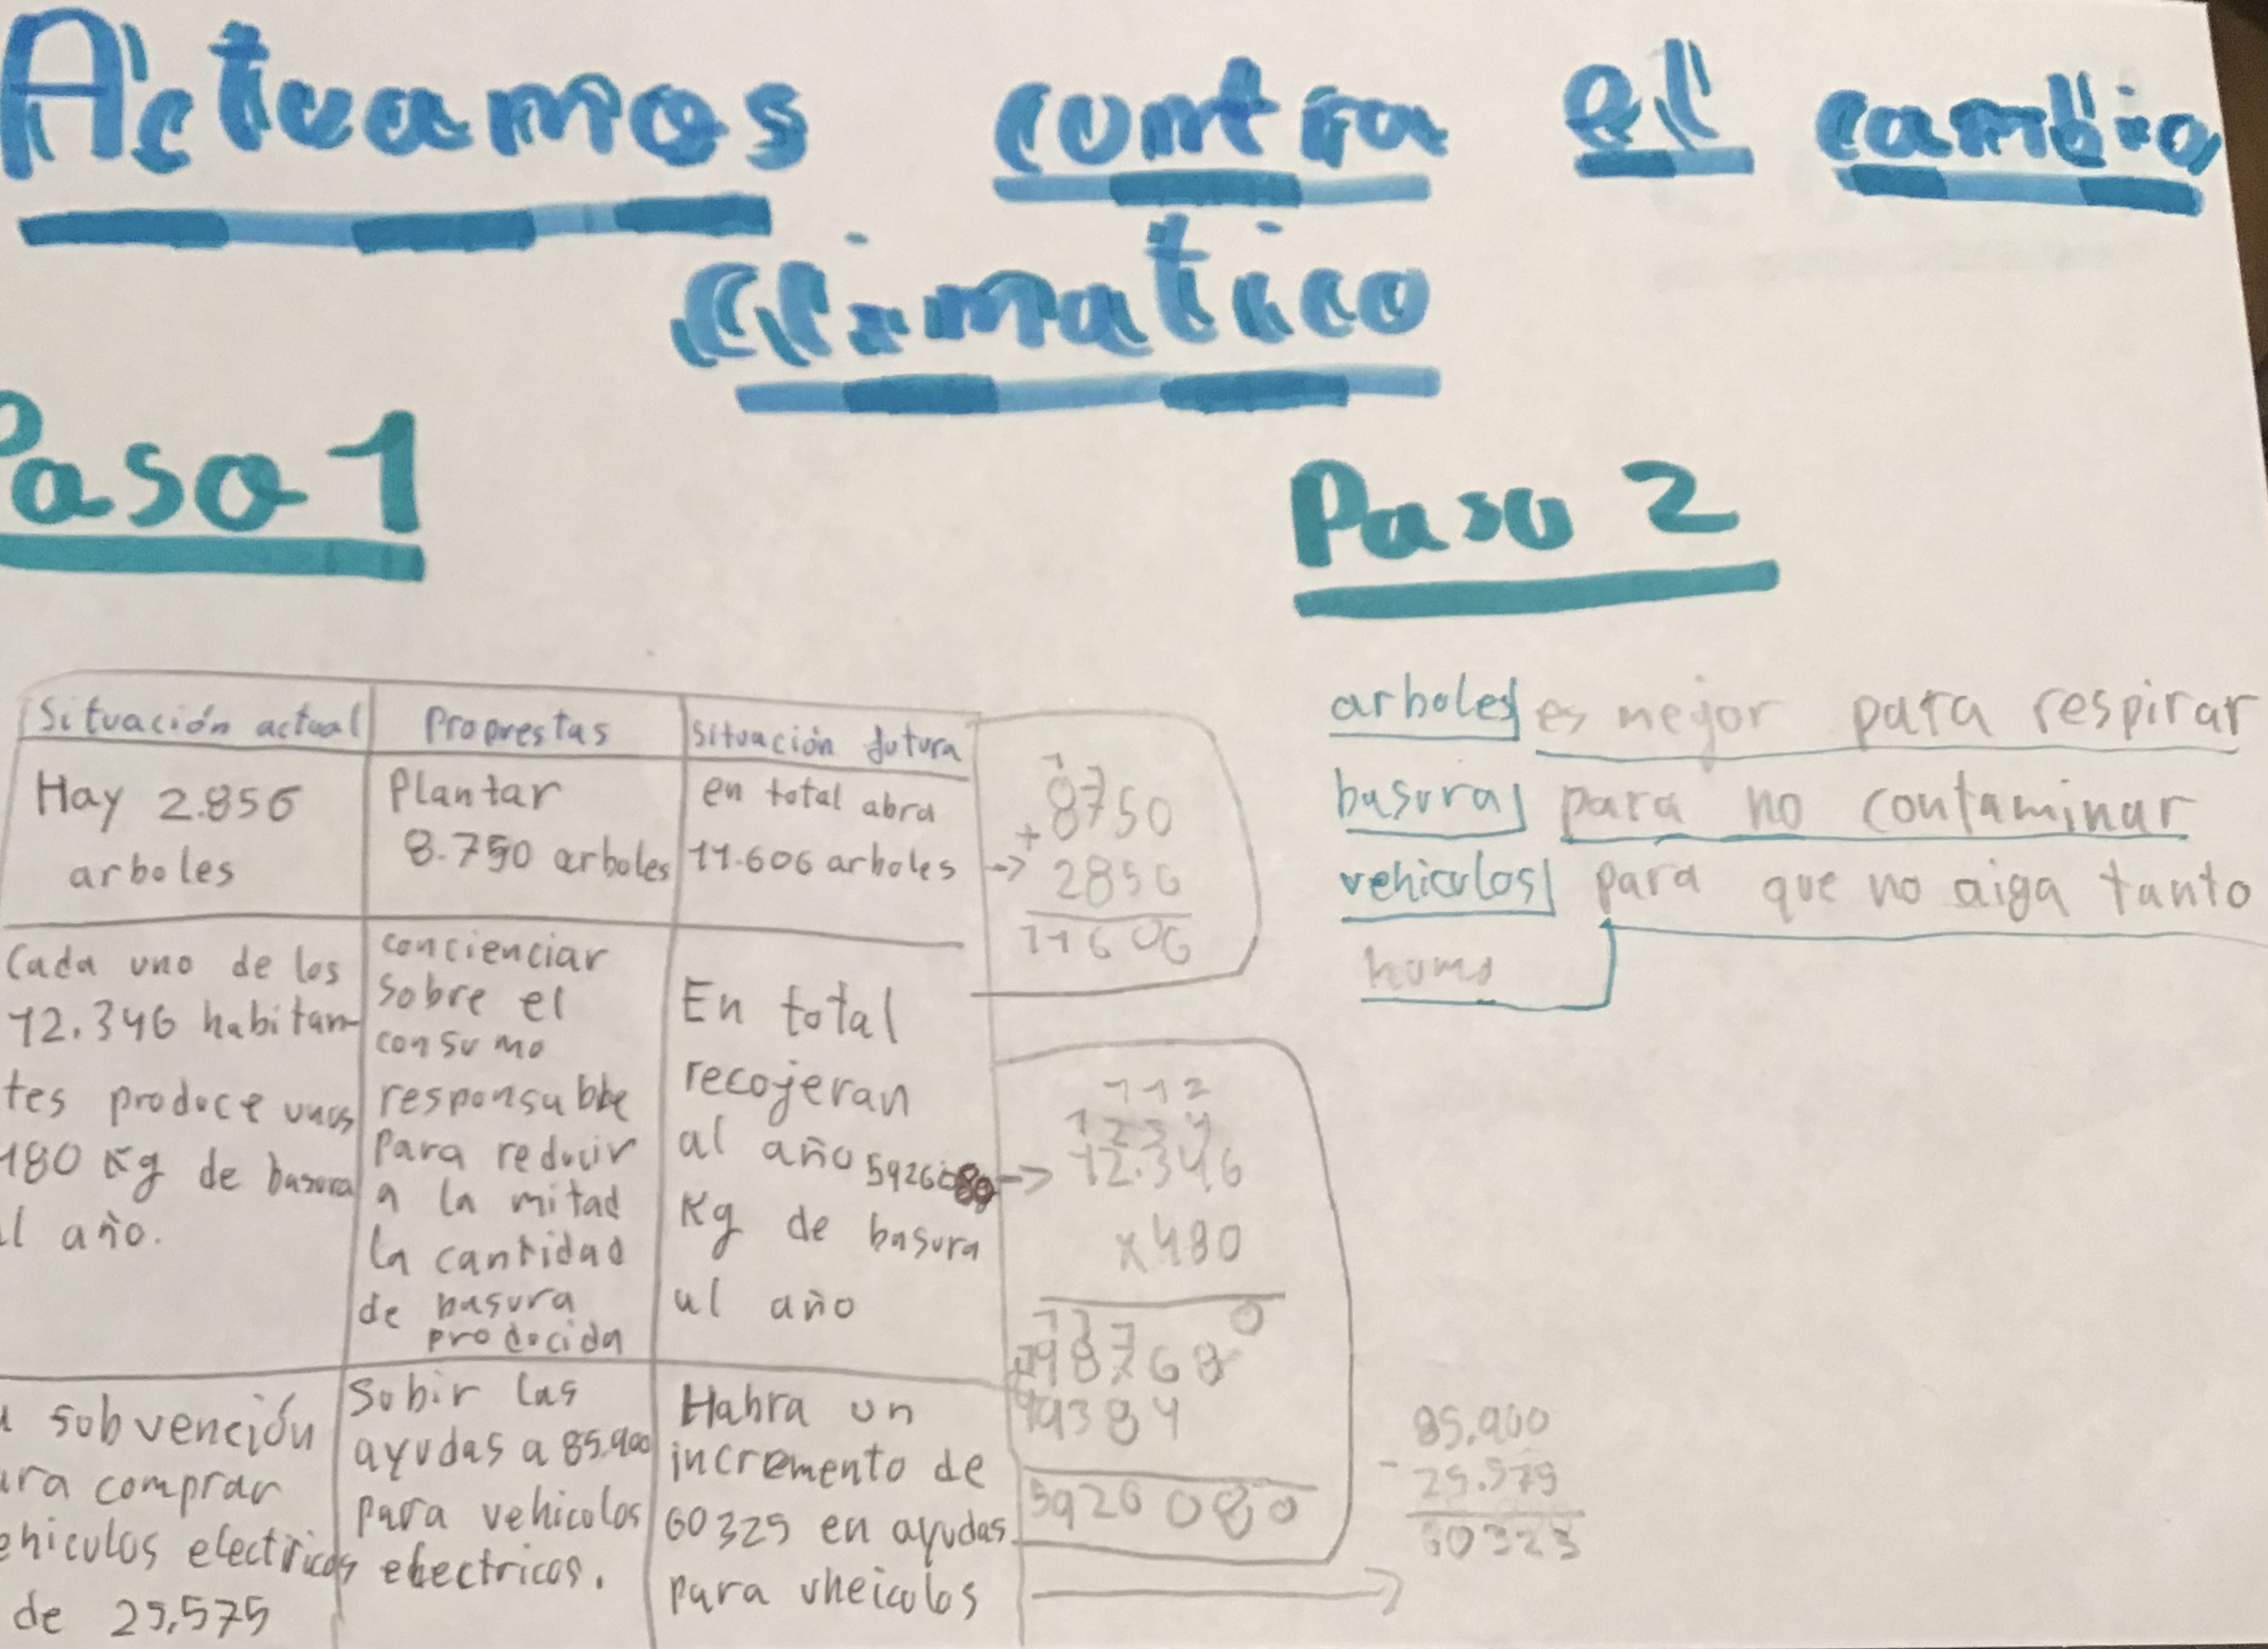 Actuamos contra el cambio
climatico
Paso 1
Paso 2
Situación actual
Hay 2.856
arboles
Cada uno de los
12.346 habitan-
tes produce unos
480 Kg de basura
al año.
subvención
para comprar
vehiculos electricos
de 25,575
Propuestas
Plantar
8.750 arboles
concienciar
sobre el
consumo
responsable
para reducir
a la mitad
la cantidad
de basura
producida
Subir las
ayudas a 85.900
para vehiculos
electricos.
situación futura
en total abra
11.606 arboles →
En total
recojeran
al año 5926080 →
Kg de basura
al año
Habra un
incremento de
60325 en ayudas
para vheiculos
1 1
8750
+
2856
11606
1 1 2
1 2 3 4
12.346
x480
0
98768
49384
5926080
85.900
- 25.575
60325
arboles es mejor para respirar
basura para no contaminar
vehiculos para que no aiga tanto
humo